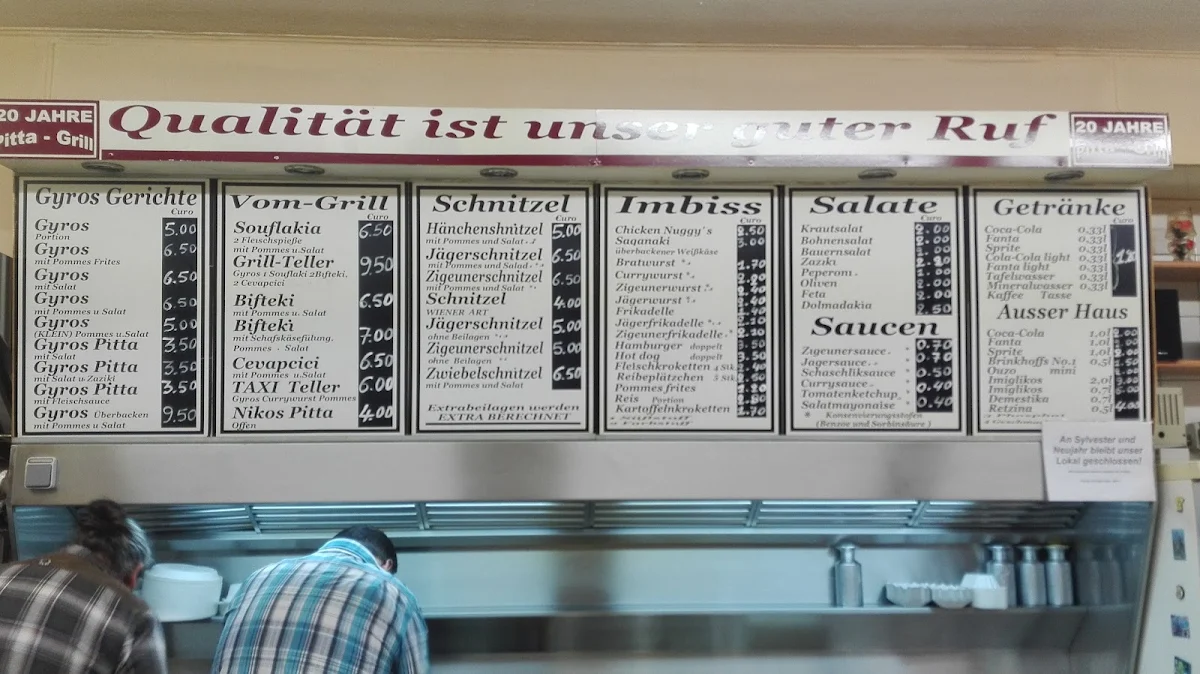 20 JAHRE
Pitta - Grill
Qualität ist unser guter Ruf
20 JAHRE
Pitta - Grill
Gyros Gerichte
Euro
Gyros 5.00
Portion
Gyros 6.50
mit Pommes Frites
Gyros 6.50
mit Salat
Gyros 6.50
mit Pommes u. Salat
Gyros 5.00
(KLEIN) Pommes u. Salat
Gyros Pitta 3.50
mit Salat
Gyros Pitta 3.50
mit Salat u. Zaziki
Gyros Pitta 3.50
mit Fleischsauce
Gyros Überbacken 9.50
mit Pommes u. Salat
Vom-Grill
Euro
Souflakia 6.50
2 Fleischspieße
mit Pommes u. Salat
Grill-Teller 9.50
Gyros 1 Souflaki 2Bifteki,
2 Cevapcici
Bifteki 6.50
mit Pommes u. Salat
Bifteki 7.00
mit Schafskäsefüllung,
Pommes - Salat
Cevapcici 6.50
mit Pommes u. Salat
TAXI Teller 6.00
Gyros Currywurst Pommes
Nikos Pitta 4.00
Offen
Schnitzel
Euro
Hänchenshnitzel 5.00
mit Pommes und Salat
Jägerschnitzel 6.50
mit Pommes und Salad
Zigeunerschnitzel 6.50
mit Pommes und Salat
Schnitzel 4.00
WIENER ART
Jägerschnitzel 5.00
ohne Beilagen
Zigeunerschnitzel 5.00
ohne Beilagen
Zwiebelschnitzel 6.50
mit Pommes und Salat
Extrabeilagen werden
EXTRA BERECHNET
Imbiss
Euro
Chicken Nuggy's 2.50
Saganaki 3.00
überbackener Weißkäse
Bratwurst 1.70
Currywurst
Zigeunerwurst
Jägerwurst
Frikadelle
Jägerfrikadelle
Zigeunerfrikadelle
Hamburger doppelt 3.50
Hot dog doppelt
Fleischkroketten
Reibeplätzchen
Pommes frites
Reis Portion
Kartoffelnkroketten 1.70
Salate
Euro
Krautsalat 2.00
Bohnensalat 2.00
Bauernsalat
Zaziki
Peperoni
Oliven
Feta
Dolmadakia 2.50
Saucen
Zigeunersauce 0.70
Jägersauce 0.70
Schaschliksauce 0.50
Currysauce 0.40
Tomatenketchup
Salatmayonaise 0.40
* Konservierungsstofen
(Benzoe und Sorbinsäure)
Getränke
Euro
Coca-Cola 0.33l
Fanta 0.33l
Sprite 0.33l
Cola-Cola light 0.33l
Fanta light 0.33l
Tafelwasser 0.33l
Mineralwasser 0.33l
Kaffee Tasse
Ausser Haus
Coca-Cola 1.0l 2.00
Fanta 1.0l
Sprite 1.0l
Brinkhoffs No.1 0.5l
Ouzo mini
Imiglikos 2.0l
Imiglikos 0.7l
Demestika 0.7l
Retzina 0.5l 4.00
An Sylvester und
Neujahr bleibt unser
Lokal geschlossen!